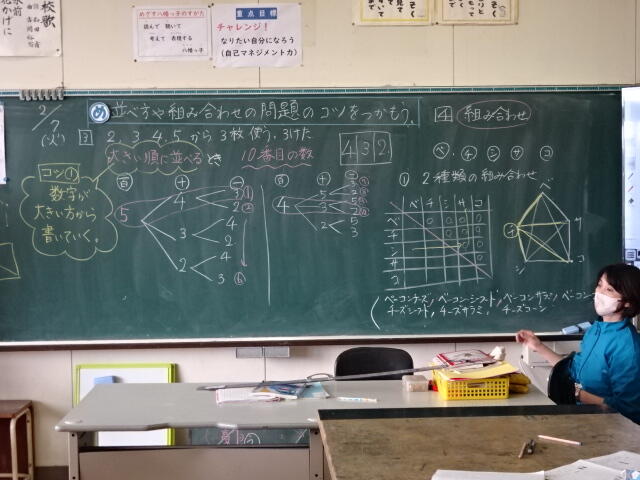 校歌
めざす八幡っ子のすがた
読んで 聴いて
考えて 表現する
八幡っ子
重点目標
チャレンジ!
なりたい自分になろう
(自己マネジメント力)
2/7
(火)
め 並べ方や組み合わせの問題のコツをつかもう。
3 2、3、4、5から3枚使う、3けた
432
大きい順に並べるとき 10番目の数
コツ①
数字が
大きい方から
書いていく。
百 十 一
5 4 3
2
3 4
2
2 4
3
百 十 一
4 5 3
2
3 5
2
2 5
3
4 組み合わせ
ベ・チ シ サ コ
① 2種類の組み合わせ
ベ チ シ サ コ
ベ
チ
シ
サ
コ
ベ
チ サ
シ コ
(ベーコンチーズ、ベーコンシーフード、ベーコンサラミ、ベーコン
チーズシーフード、チーズサラミ、チーズコーン